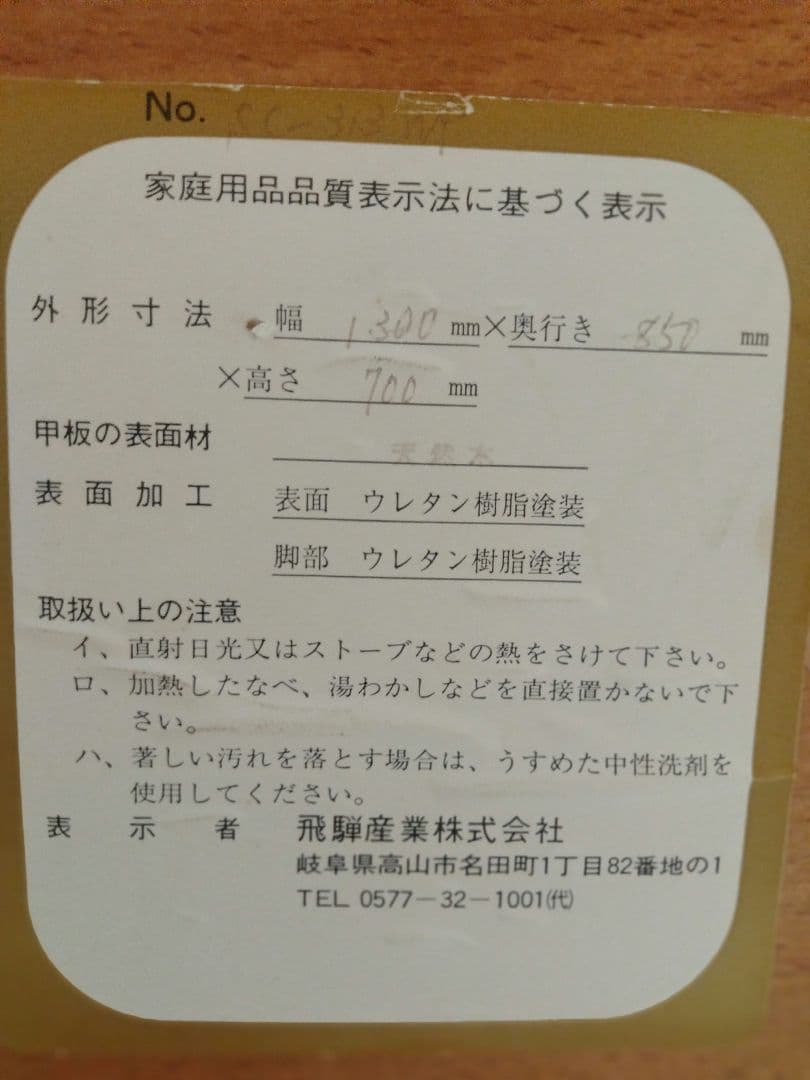 No.
家庭用品品質表示法に基づく表示
外形寸法 幅 1300 mm×奥行き 850 mm
×高さ 700 mm
甲板の表面材 天然木
表面加工 表面 ウレタン樹脂塗装
脚部 ウレタン樹脂塗装
取扱い上の注意
イ、直射日光又はストーブなどの熱をさけて下さい。
ロ、加熱したなべ、湯わかしなどを直接置かないで下
さい。
ハ、著しい汚れを落とす場合は、うすめた中性洗剤を
使用してください。
表示者 飛騨産業株式会社
岐阜県高山市名田町1丁目82番地の1
TEL 0577-32-1001㈹